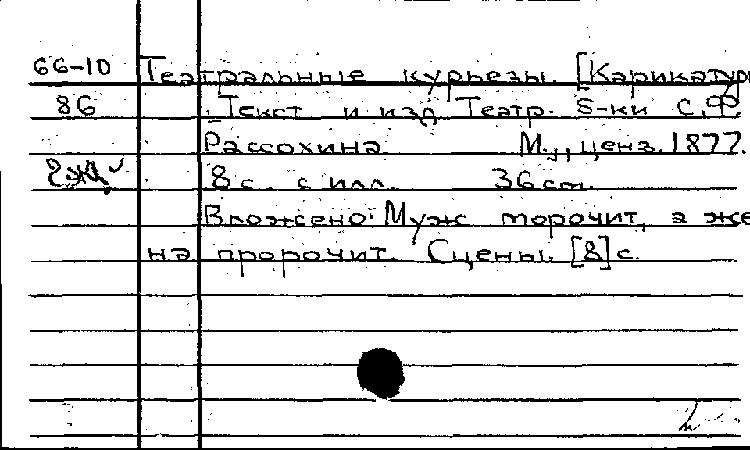 66-10 Театральные курьезы. [Карикатур
86 Текст и изд. Театр. б-ки С.Ф.
Рассохина М., ценз. 1877.
8 с. с илл. 36 cm.
Вложено: Муж морочит, а же
на пророчит. Сцены. [8] с.